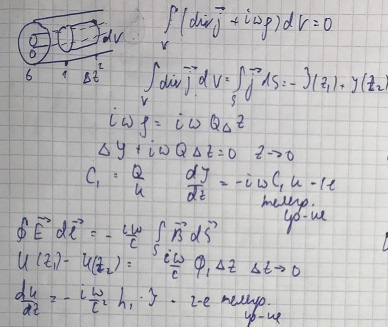 ∫_V (div j⃗ + iωρ) dV = 0
dV
б 1 Δz 2
∫_V div j⃗ dV = ∫_S j⃗ dS = - J(z₁) + J(z₂)
iωρ = iωQΔz
ΔJ + iωQΔz = 0 z→0
C₁ = Q/u dJ/dz = -iωC₁u - 1-е
телегр.
ур-ие
∮ E⃗ dl⃗ = - iω/c ∫_S B⃗ dS⃗
U(z₁) - U(z₂) = iω/c Φ₁ Δz Δz→0
du/dz = -i ω/c² L₁ · J - 2-е телегр.
ур-ие